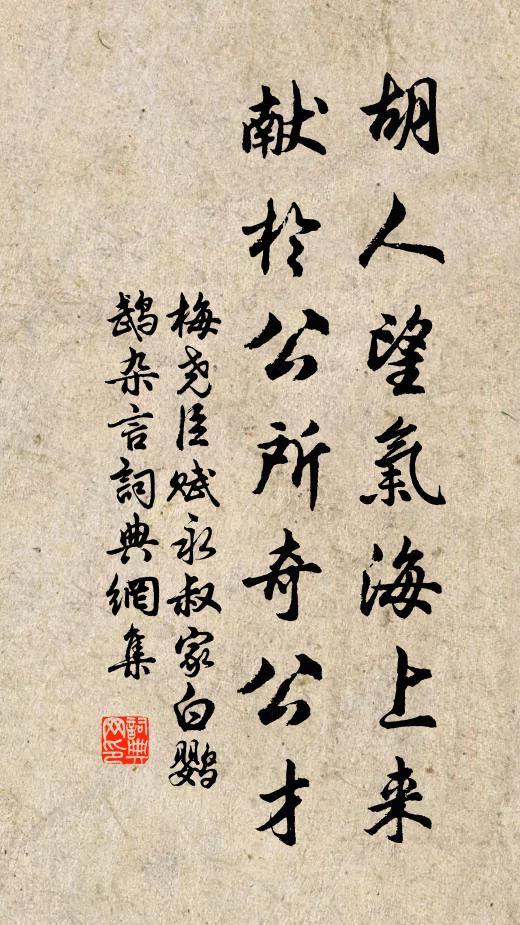 胡人望氣海上来
献於公所奇公才
梅尧臣赋永叔家白鹦
鹉杂言詞典網集
詞典
网印